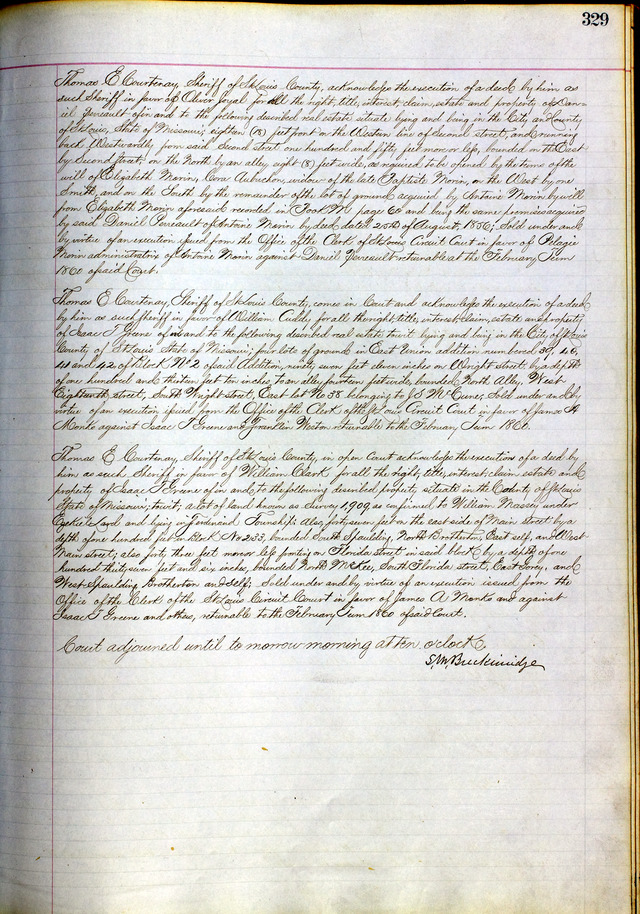 329
Thomas E Courtenay, Sheriff of St Louis County, acknowledges the execution of a deed by him as
such Sheriff in favor of Oliver Joyal for all the right, title, interest, claim, estate and property of Dan-
iel Pereault of in and to the following described real estate situate lying and being in the City and County
of St Louis, State of Missouri; eighteen (18) feet front on the Western line of Second street, and running
back Westwardly from said Second street one hundred and fifty feet more or less, bounded on the East
by Second street, on the North by an alley eight (8) feet wide, as required to be opened by the terms of the
will of Elizabeth Morin, born Aubuchon, widow of the late Baptiste Morin, on the West by one
Smith, and on the South by the remainder of the lot of ground acquired by Antoine Morin by will
from Elizabeth Morin aforesaid recorded in Book page 60 and being the same premises acquired
by said Daniel Pereault of Antoine Morin by deed dated 25th of August, 1856; Sold under and
by virtue of an execution issued from the Office of the Clerk of St Louis Circuit Court in favor of Pelagie
Morin administratrix of Antoine Morin against Daniel Pereault returnable at the February Term
1860 of said Court.
Thomas E Courtenay, Sheriff of St Louis County, comes in Court and acknowledges the execution of a deed
by him as such Sheriff in favor of William for all the right, title, interest, claim, estate and property
of Isaac T Greene of in and to the following described real estate to wit lying and being in the City of St Louis
County of St Louis State of Missouri; four lots of ground in East Union addition numbered 39, 40,
41 and 42 of Block No 2 of said Addition, ninety seven feet eleven inches on Wright street, by a depth
of one hundred and thirteen feet ten inches to an alley fourteen feet wide, bounded North Alley, West
Eighteenth street, South Wright street, East lot No 38 belonging to S McCune, Sold under and by
virtue of an execution issued from the Office of the Clerk of the St Louis Circuit Court in favor of James A
Monks against Isaac T Greene and Franklin returnable to the February Term 1860.
Thomas E Courtenay, Sheriff of St Louis County, in open Court acknowledges the execution of a deed by
him as such Sheriff in favor of William Clark for all the right, title, interest, claim, estate and
property of Isaac T Greene of in and to the following described property situate in the County of St Louis
State of Missouri; to wit; a lot of land known as Survey 1,909 as confirmed to William Massey under
and lying in Ferdinand Township; Also forty seven feet on the east side of Main street by a
depth of one hundred feet in Block No 233, bounded South Spaulding, North Brotherton, East self, and West
Main street; also forty three feet more or less fronting on Florida street in said block by a depth of one
hundred thirty seven feet and six inches, bounded North McKee, South Florida street, East and
West Spaulding Brotherton and self; Sold under and by virtue of an execution issued from the
Office of the Clerk of the St Louis Circuit Court in favor of James A Monks and against
Isaac T Greene and others, returnable to the February Term 1860 of said Court.
Court adjourned until to morrow morning at ten o'clock,
S. M. Breckinridge